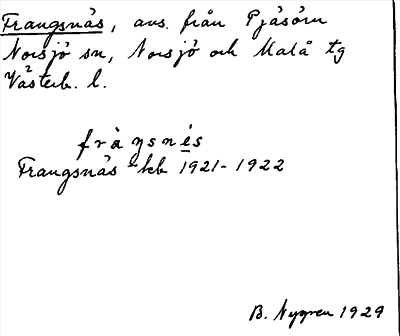 Frangsnäs, avs. från Pjäsörn
Norsjö sn, Norsjö och Malå tg
Västerb. l.
fràŋsnès
Frangsnäs kb 1921-1922
B. Nygren 1929